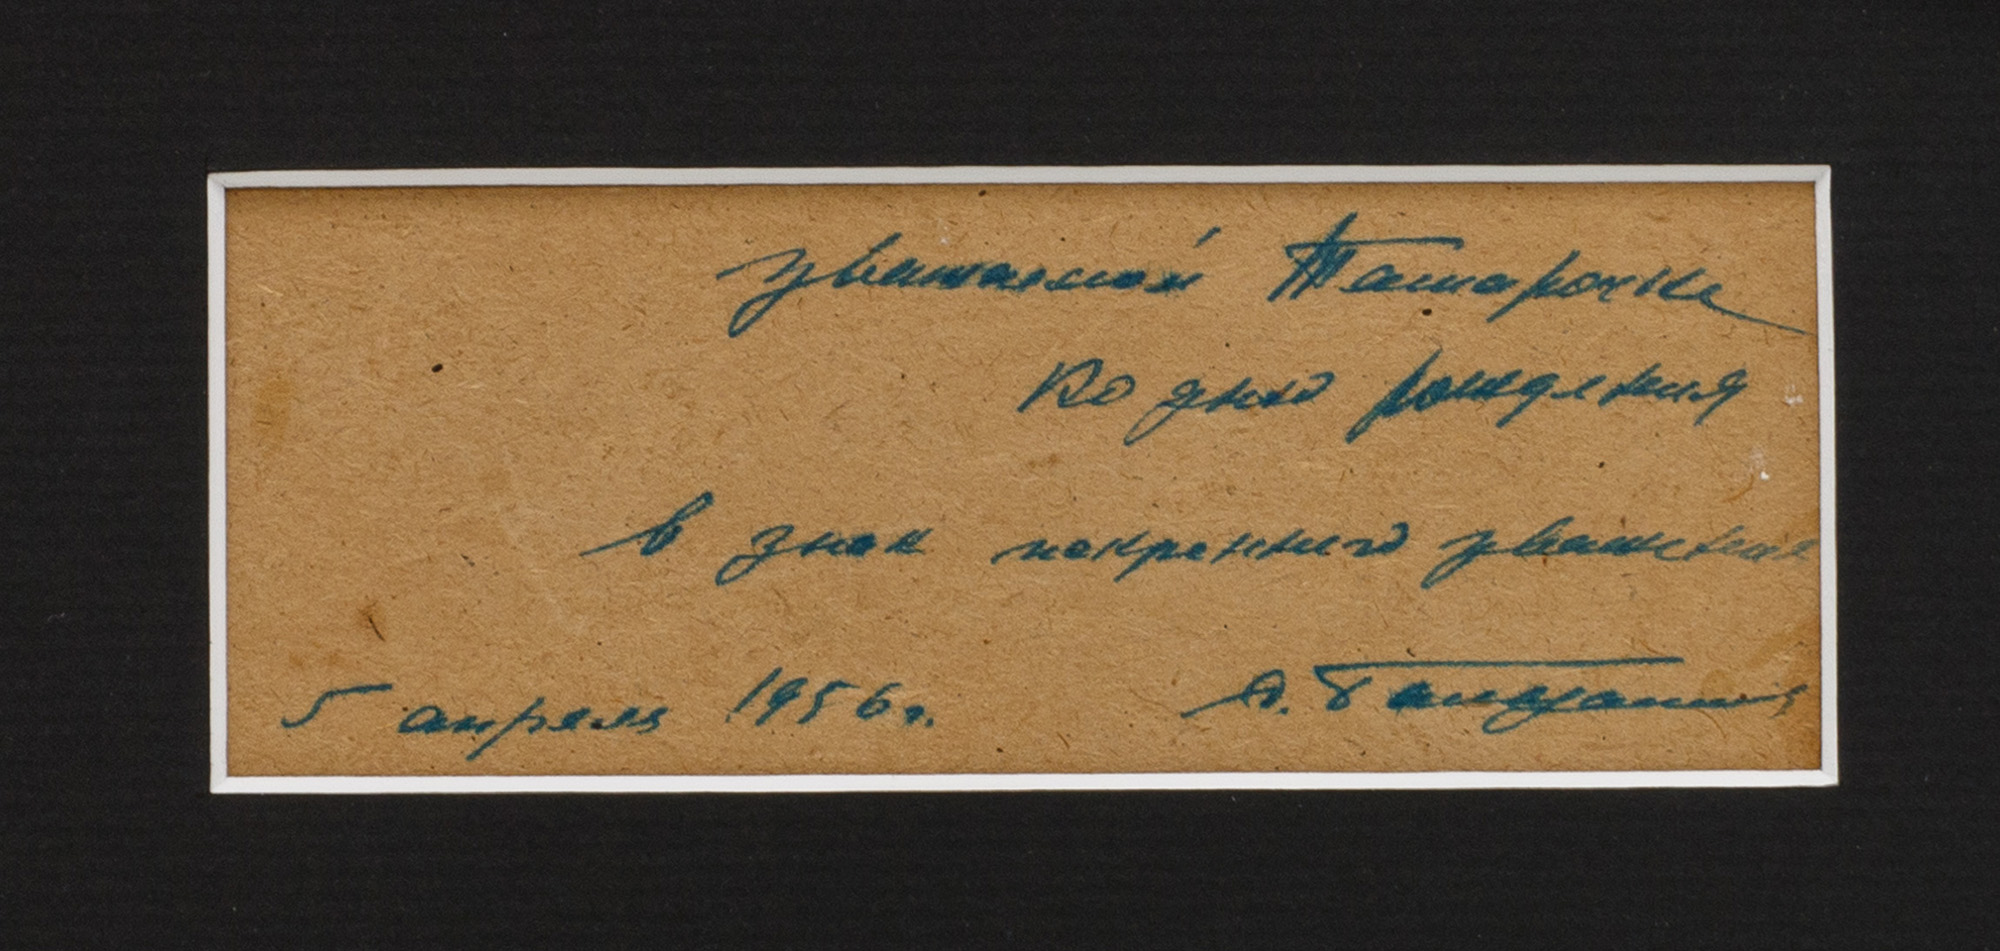 уважаемой Тамарочке
ко дню рождения
в знак искреннего уважения
5 апреля 1956 г. А.